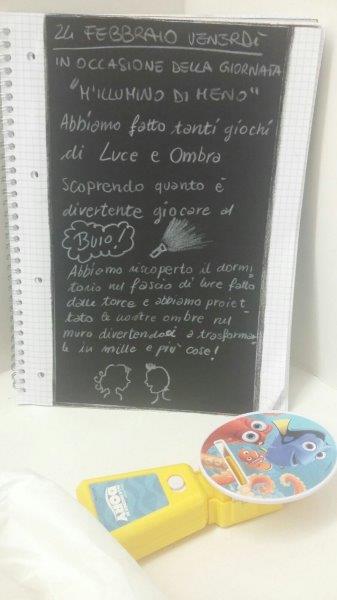 24 FEBBRAIO VENERDÌ
IN OCCASIONE DELLA GIORNATA
"M'ILLUMINO DI MENO"
Abbiamo fatto tanti giochi
di Luce e Ombra
Scoprendo quanto è
divertente giocare al
BUIO!
Abbiamo riscoperto il dormi
torio nel fascio di luce fatto
dalle torce e abbiamo proiet
tato le nostre ombre nel
muro divertendoci a trasformar
le in mille e più cose!
DORY